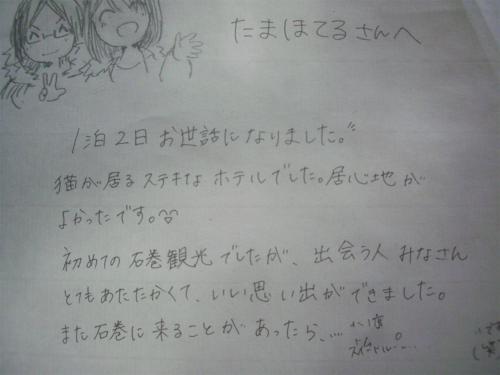 たまほてるさんへ
1泊2日お世話になりました。
猫が居るステキなホテルでした。居心地が
よかったです。
初めての石巻観光でしたが、出会う人みなさん
とてもあたたかくて、いい思い出ができました。
また石巻に来ることがあったら、…